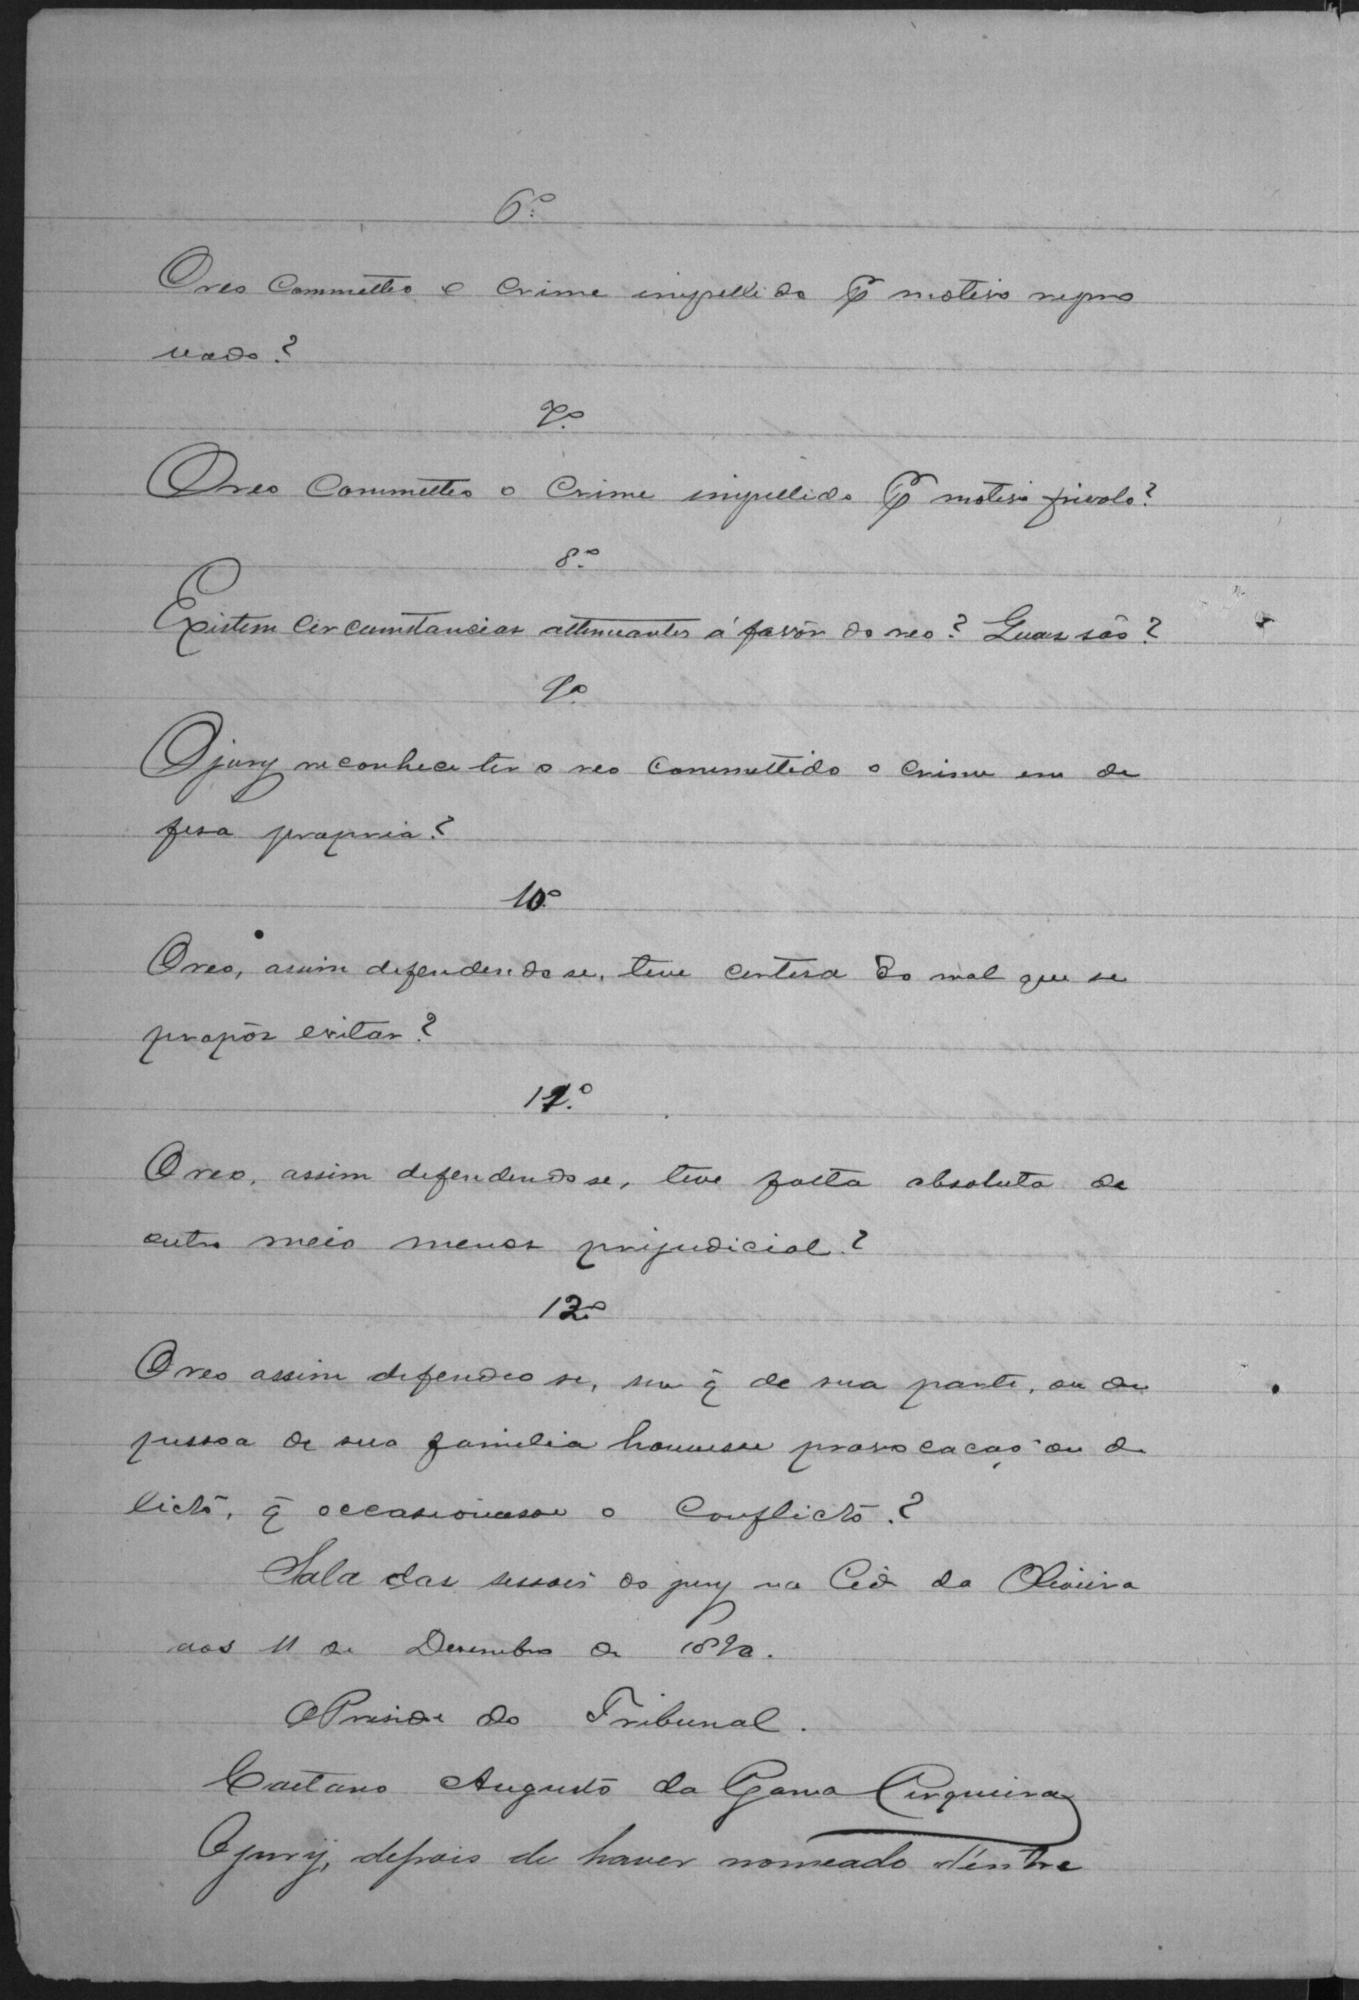 6º
O reo commetteo o crime impellido pr motivo repro
vado?
7º
O reo commetteo o crime impellido pr motivo frivolo?
8º
Existem circumstancias attenuantes á favôr do reo? Quaes são?
9º
O jury reconhece ter o reo commettido o crime em de
fesa propria?
10º
O reo, assim defendendo se, teve certesa do mal que se
propôs evitar?
11º
O reo, assim defendendo se, teve falta absoluta de
outro meio menos prejudicial?
12º
O reo assim defendeo se, sem q̃ de sua parte, ou de
pessoa de sua familia houvesse provocação ou de
licto, q̃ occasionasse o conflicto?
Sala das sessões do jury na Cide da Oliveira
aos 11 de Desembro de 1890.
O Preside do Tribunal.
Caetano Augusto da Gama Cerqueira
O jury, depois de haver nomeado d'entre